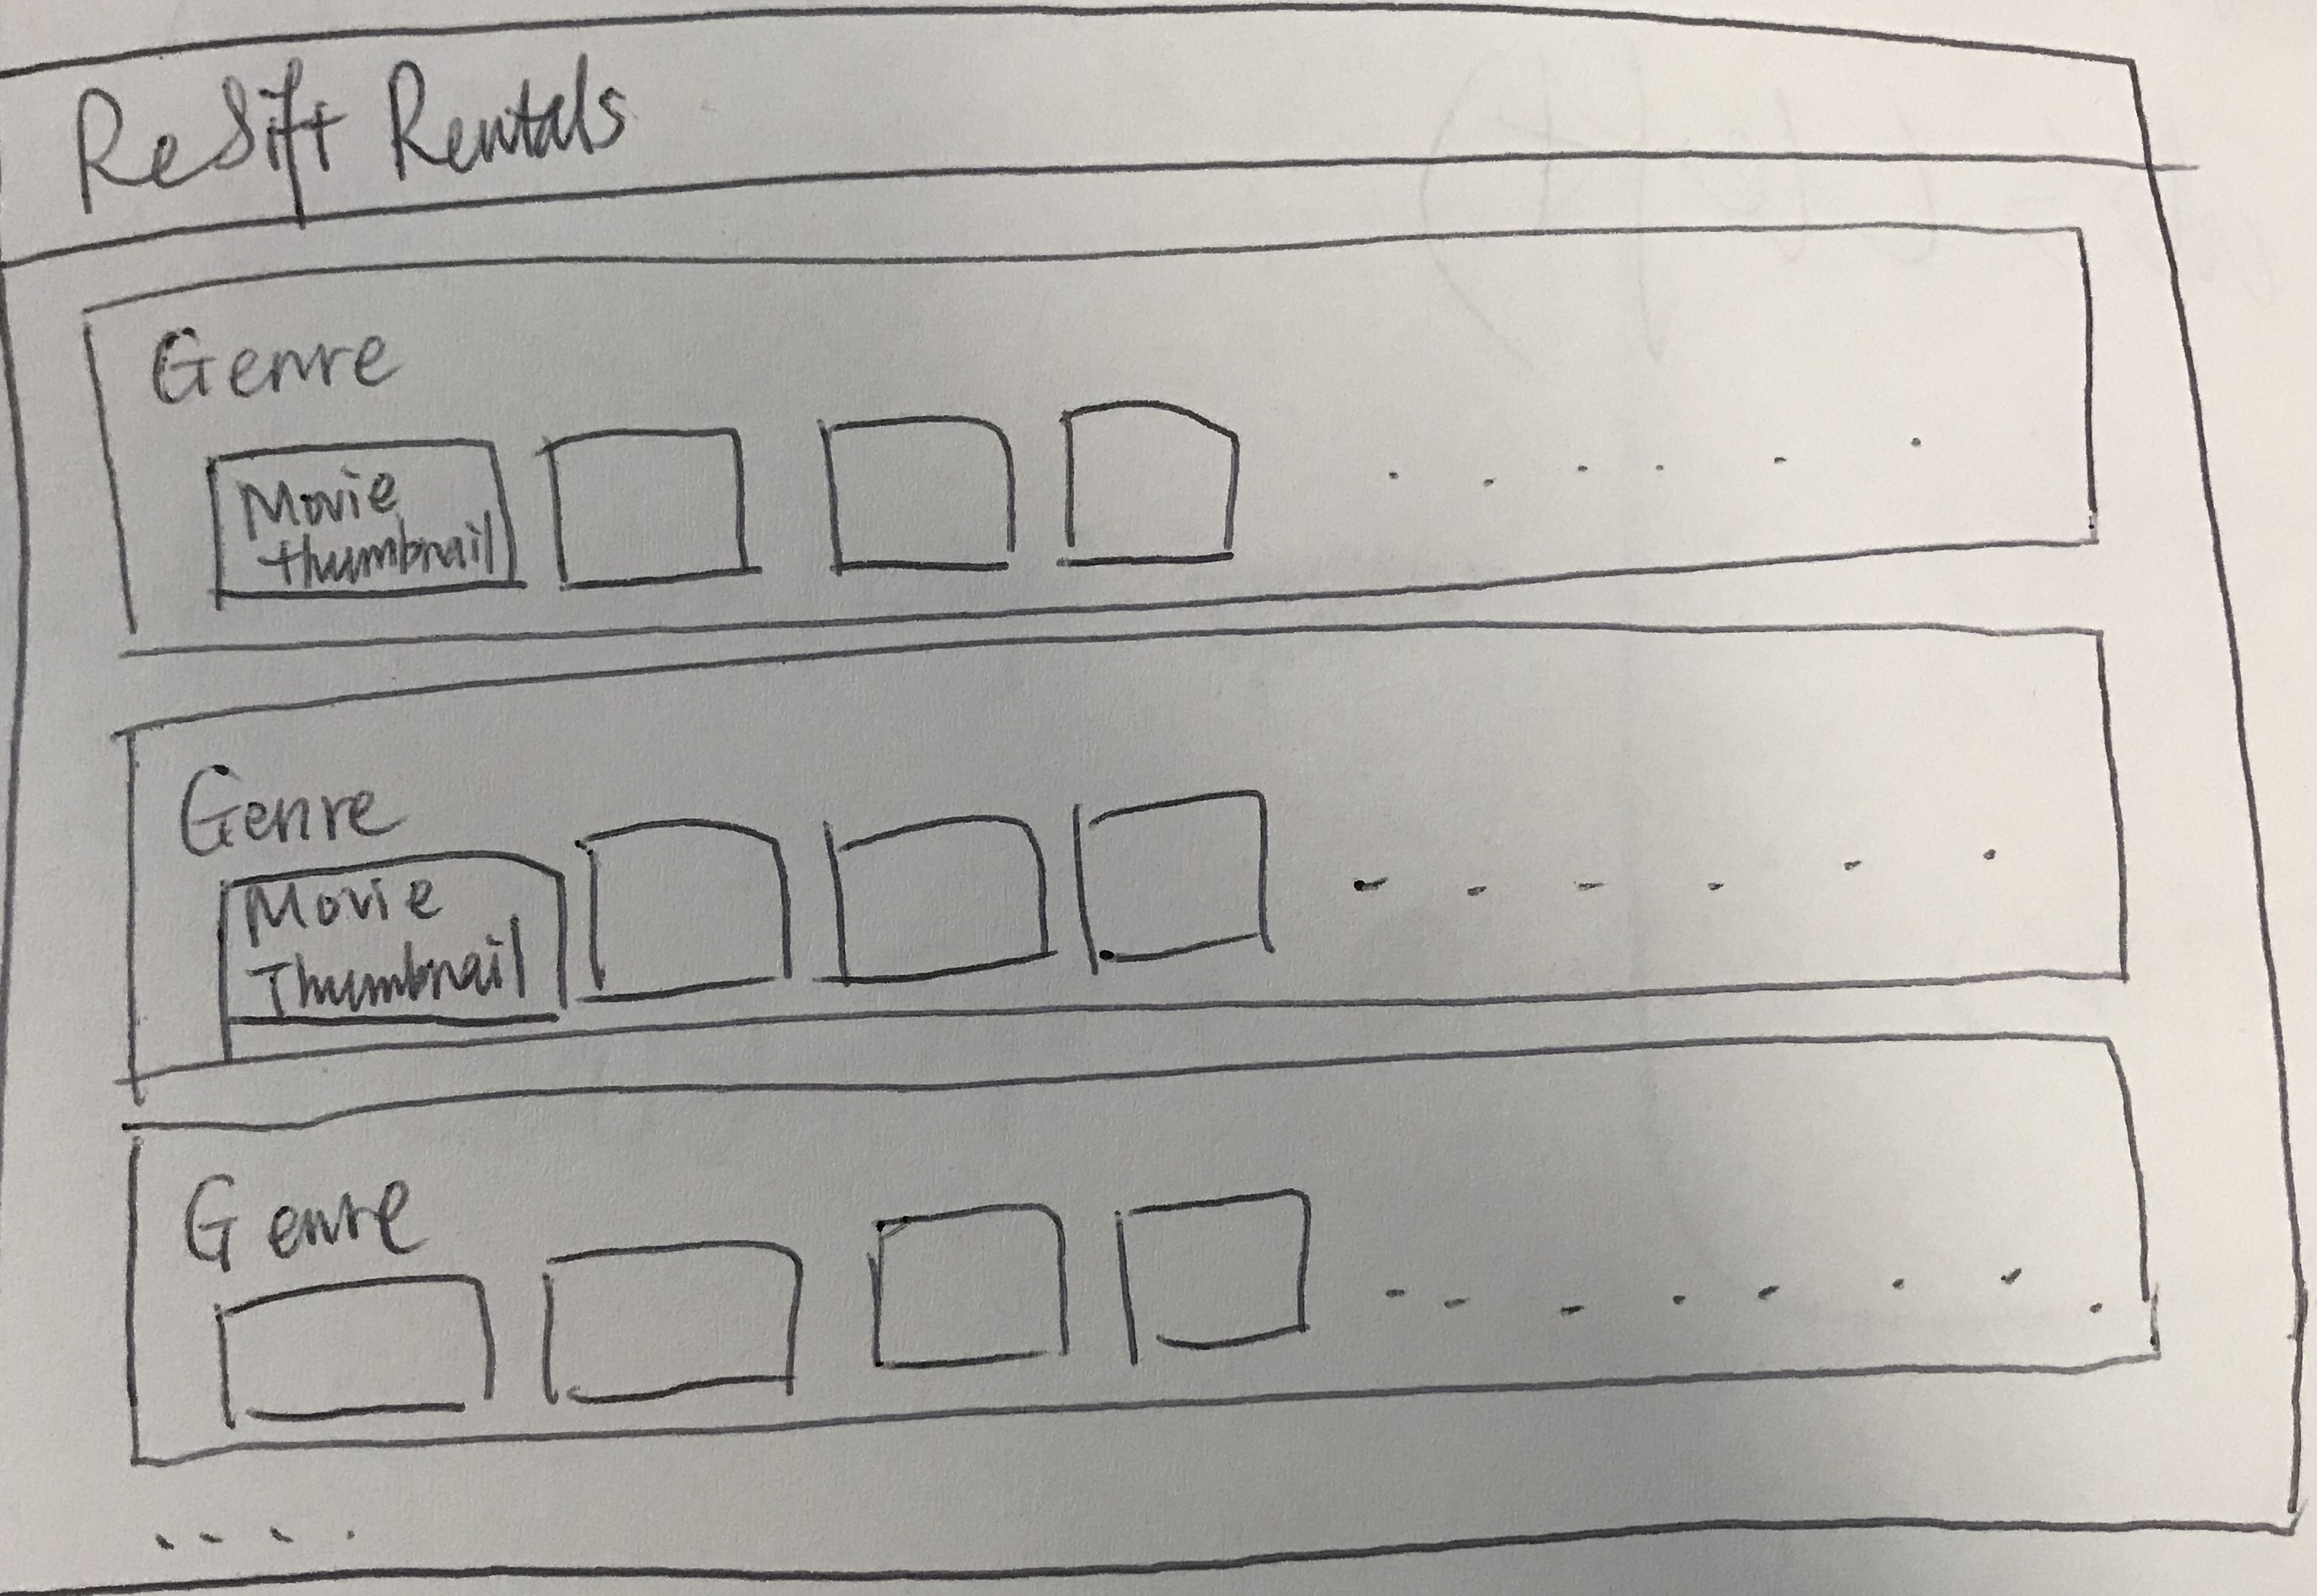 ReSift Rentals
Genre
Movie
thumbnail
Genre
Movie
Thumbnail
Genre